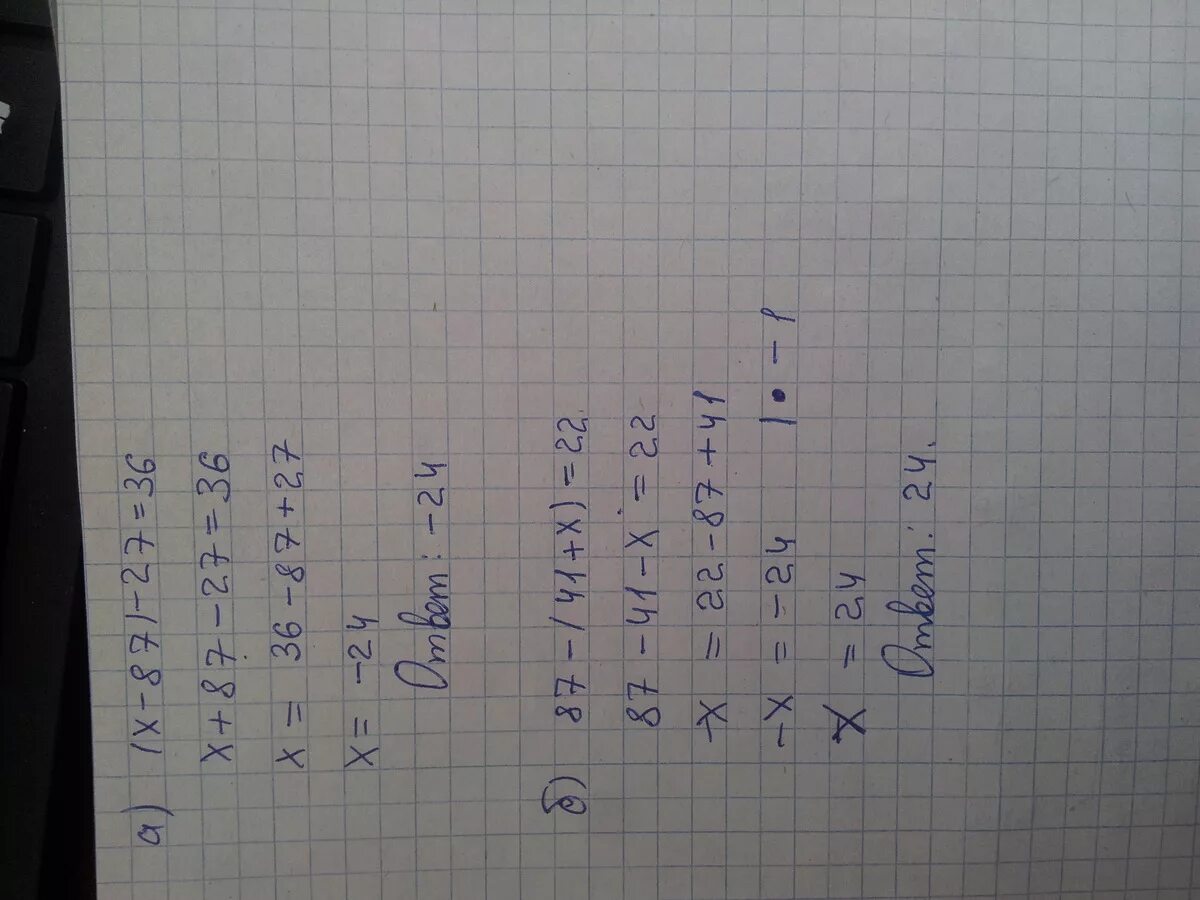 а) (x-87)-27=36
x+87-27=36
x = 36-87+27
x= -24
Ответ: -24
б) 87-(41+x)=22
87-41-x=22
-x = 22-87+41
-x = -24 |• -1
x = 24
Ответ: 24.